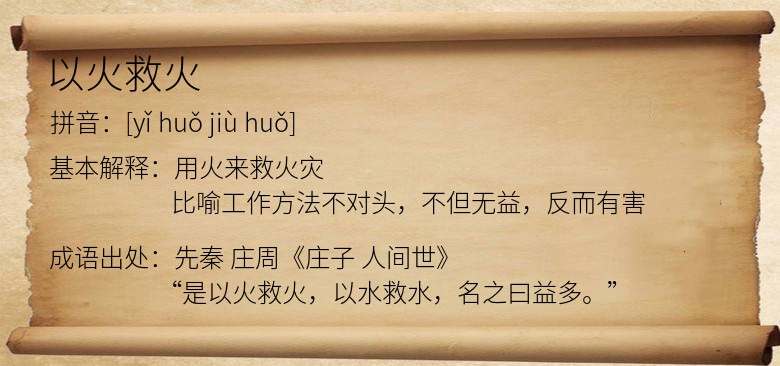 以火救火
拼音：[yǐ huǒ jiù huǒ]
基本解释：用火来救火灾
比喻工作方法不对头，不但无益，反而有害
成语出处：先秦 庄周《庄子 人间世》
“是以火救火，以水救水，名之曰益多。”